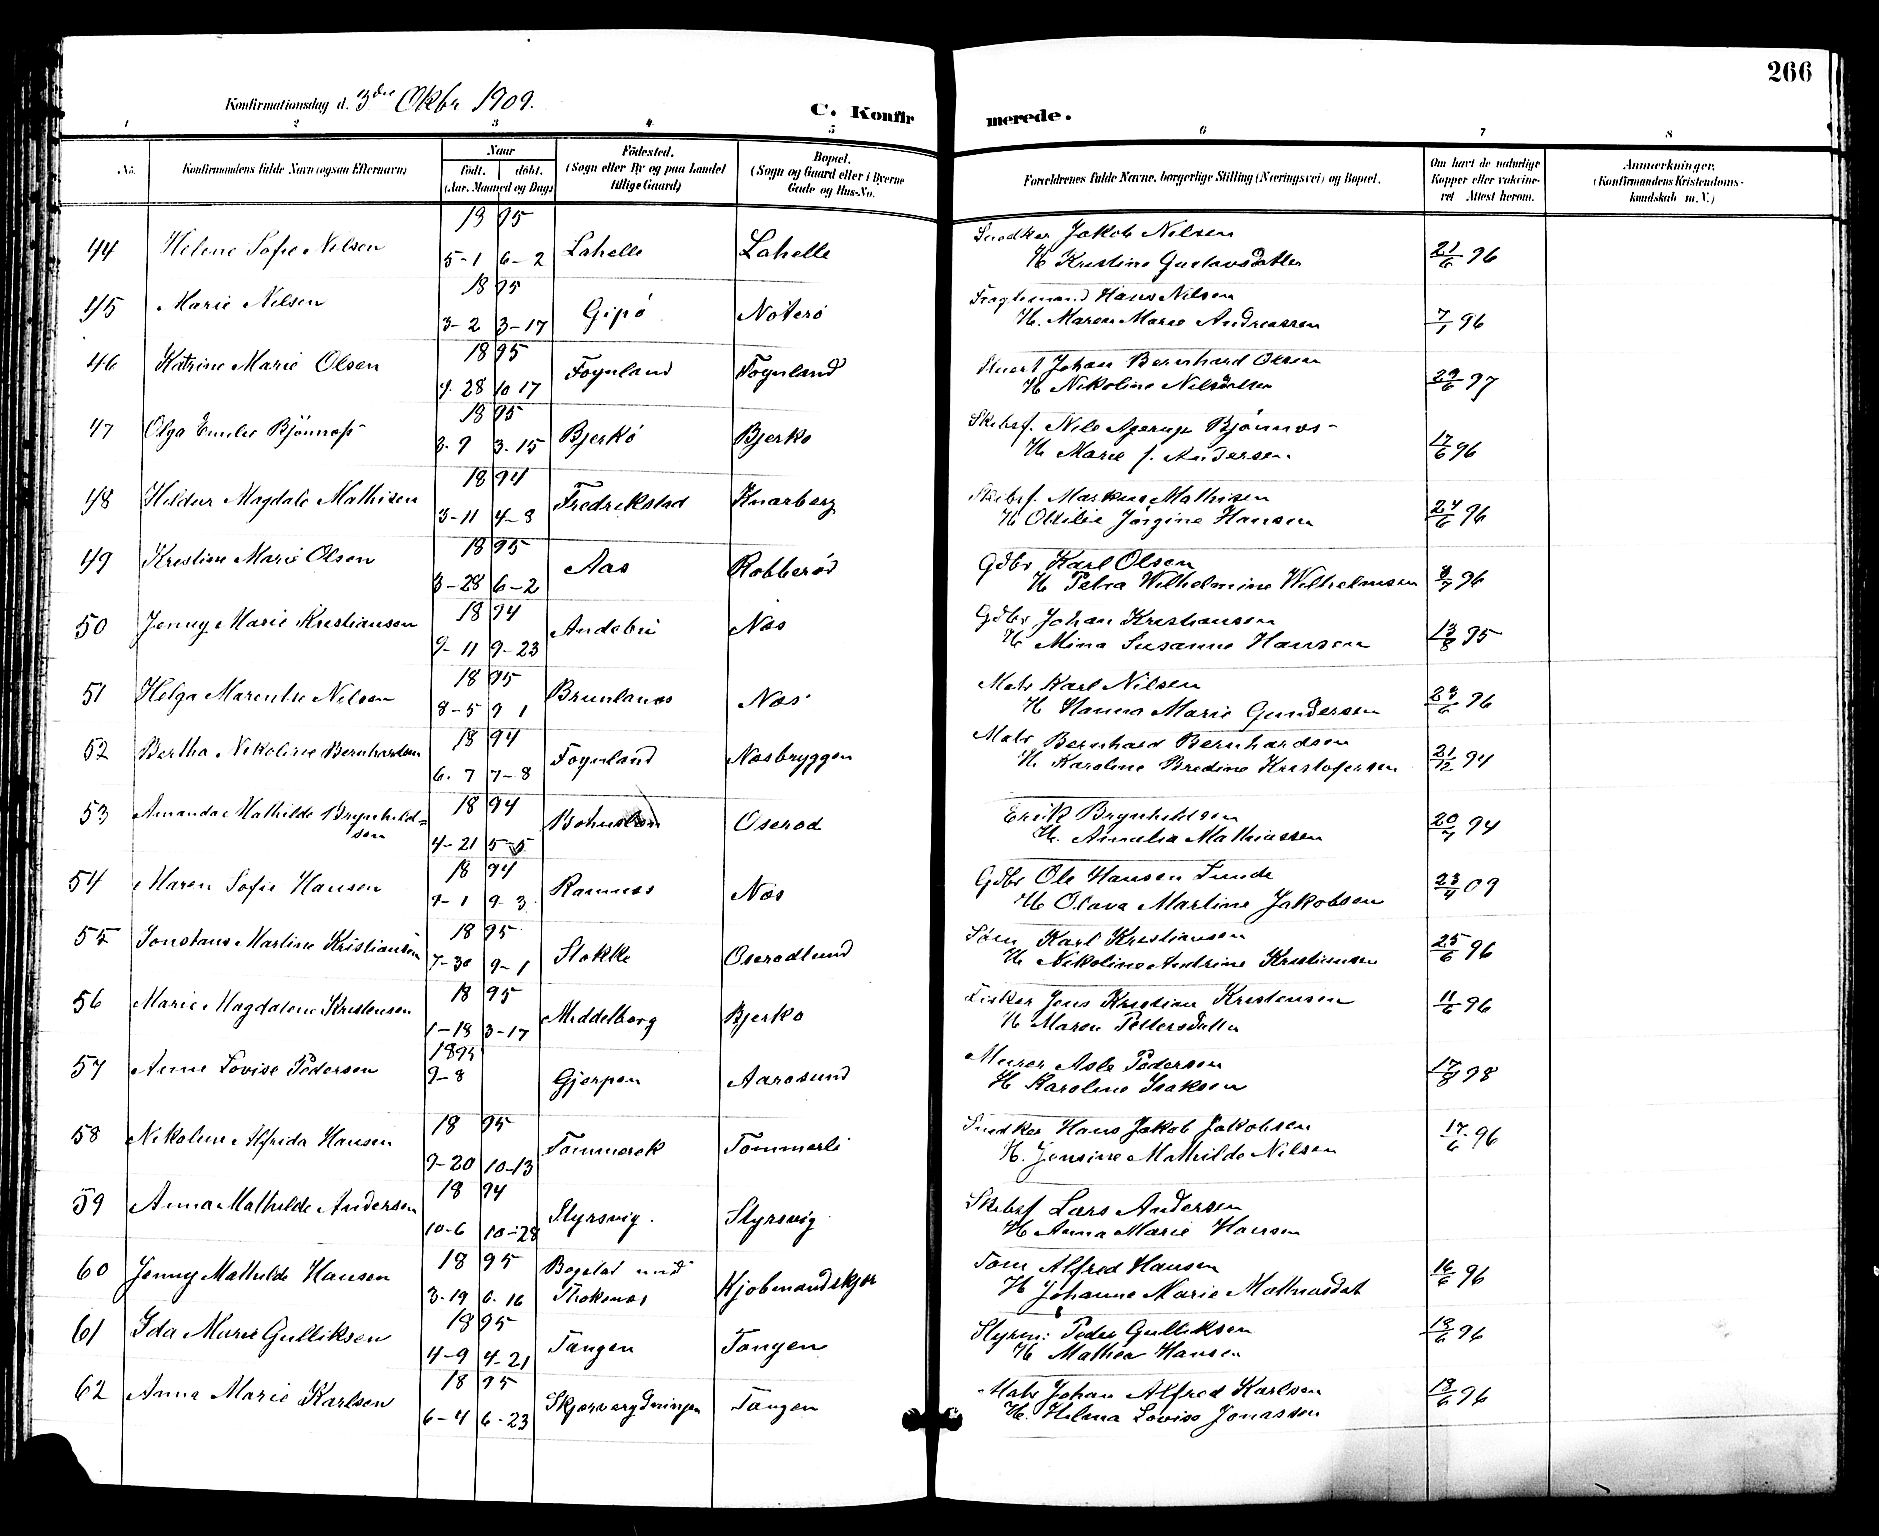 266
Konfirmationsdag d. 3die Oktbr 1909.
C. Konfirmerede.
1 2 3 4 5 6 7 8
No.
Konfirmandens fulde Navn (ogsaa Efternavn)
Naar
født. døbt.
(Aar, Maaned og Dag)
Födested.
(Sogn eller By og paa Landet
tillige Gaard)
Bopæl.
(Sogn og Gaard eller i Byerne
Gade og Hus-No.
Forældrenes fulde Navne, borgerlige Stilling (Næringsvei) og Bopæl.
Om havt de naturlige
Kopper eller vakcineret
Attest herom.
Anmærkninger,
(Konfirmandens Kristendomskundskab
m. V.)
44 Helene Sofie Nilsen 1895 5-1 6-2 Lahelle Lahelle Snedker Jakob Nilsen
H. Kristine Gustavsdatter 21/6 96
45 Marie Nilsen 1895 3-2 3-17 Gipö Nöterö Fragtemand Hans Nilsen
H. Maren Marie Andreassen 7/1 96
46 Katrine Marie Olsen 1895 9-28 10 17 Föynland Föynland Johan Bernhard Olsen
H Nikoline Nilsdatter 29/6 97
47 Olga Emilie Bjönness 1895 2-9 3-15 Bjerkö Bjerkö Skibsf. Nils Agerup Bjönnes
H. Marie f. Andersen 17/6 96
48 Hildur Magdale Mathisen 1894 3-11 4-8 Fredrikstad Knarberg Skibsf. Markus Mathisen
H Ottilie Jörgine Hansen 24/6 96
49 Kristine Marie Olsen 1895 3-28 6-2 Aas Robberöd Gdbr Karl Olsen
H Petra Wilhelmine Wilhelmsen 8/7 96
50 Jenny Marie Kristiansen 1894 9-11 9-23 Andebu Næs Gdbr Johan Kristiansen
H. Mina Susanne Hansen 13/8 95
51 Helga Marentse Nilsen 1895 8-5 9 1 Brunlanæs Næs Matr Karl Nilsen
H Hanna Marie Gundersen 23/6 96
52 Bertha Nikoline Bernhardsen 1894 6-7 7-8 Föynland Næsbryggen Matr Bernhard Bernhardsen
H. Karoline Bredine Kristofersen 21/12 94
53 Amanda Mathilde Brynhildsen 1894 4-21 5-5 Bohuslen Oseröd Erik Brynhildsen
H. Amalia Mathiassen 20/7 94
54 Maren Sofie Hansen 1894 9-1 9-3 Ramnæs Næs Gdbr Ole Hansen Lunde
H Olava Martine Jakobsen 23/4 09
55 Martine Kristiansen 1895 7-30 9-1 Stokke Oserödlund Töm Karl Kristiansen
H. Nikoline Andrine Kristiansen 25/6 96
56 Marie Magdalene Kristensen 1895 1-18 3-17 Middelborg Bjerkö Fisker Jens Kristian Kristensen
H Maren Pettersdatter 11/6 96
57 Anne Lovise Pedersen 1895 9-8 Gjerpen Aarösund Murer Asle Pedersen
H Karoline Isaksen 17/8 98
58 Nikoline Alfrida Hansen 1895 9-20 10-13 Tommerek Tommerli Snedker Hans Jakob Jakobsen
H. Jensine Mathilde Nilsen 17/6 96
59 Anna Mathilde Andersen 1894 10-6 10-28 Styrsvig Styrsvig Skibsf Lars Andersen
H Anna Marie Hansen
60 Jenny Mathilde Hansen 1895 3-19 6-16 Kjöbmandskjær Töm Alfred Hansen
H Johanne Marie Mathiasdat 16/6 96
61 Ida Marie Gulliksen 1895 4-9 4-21 Tangen Tangen Styrm: Peder Gulliksen
H Mathea Hansen 18/6 96
62 Anna Marie Karlsen 1895 6-4 6-23 Tangen Matr Johan Alfred Karlsen
H. Helena Lovise Jonassen 18/6 96